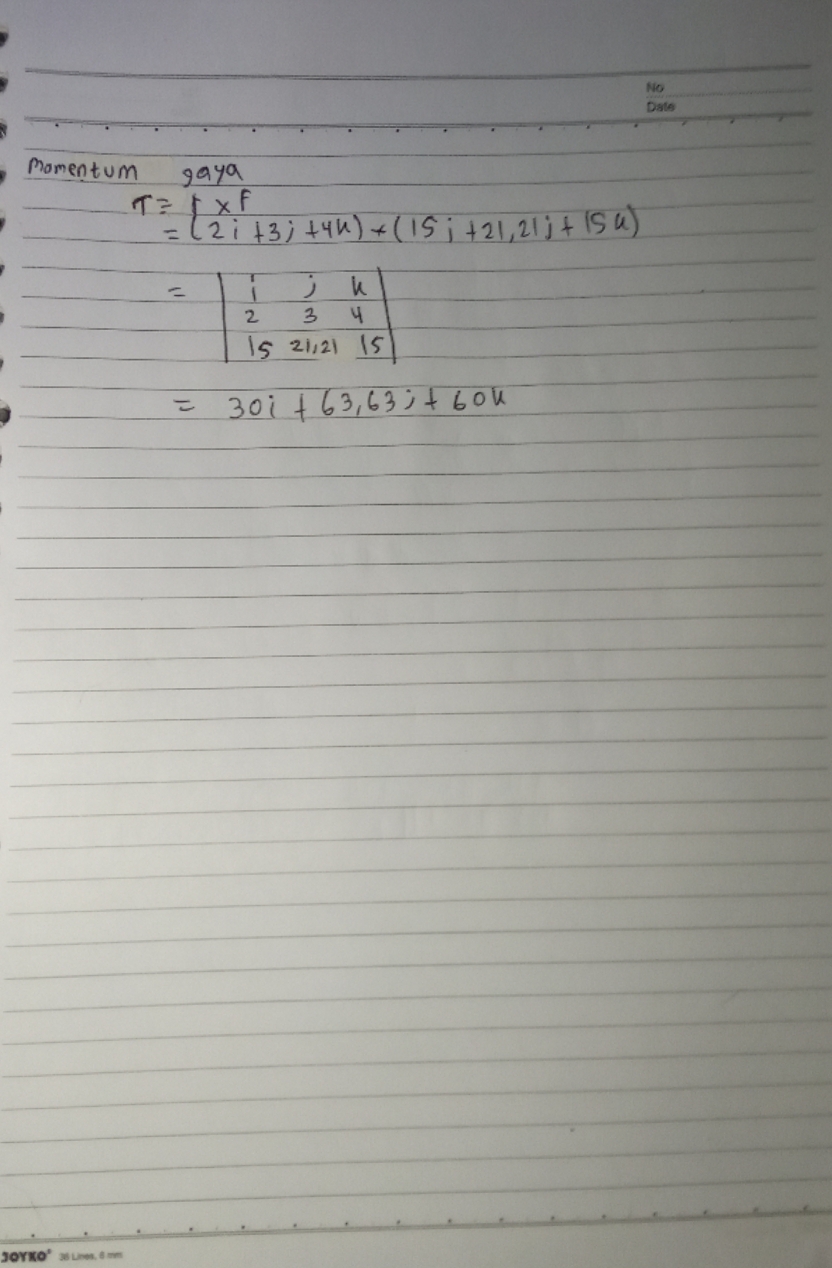 No
Date
Momentum gaya
τ = r x F
= (2i + 3j + 4k) * (15i + 21,21j + 15k)
= | i j k |
| 2 3 4 |
| 15 21,21 15 |
= 30i + 63,63j + 60k
JOYKO 36 Lines, 6 mm